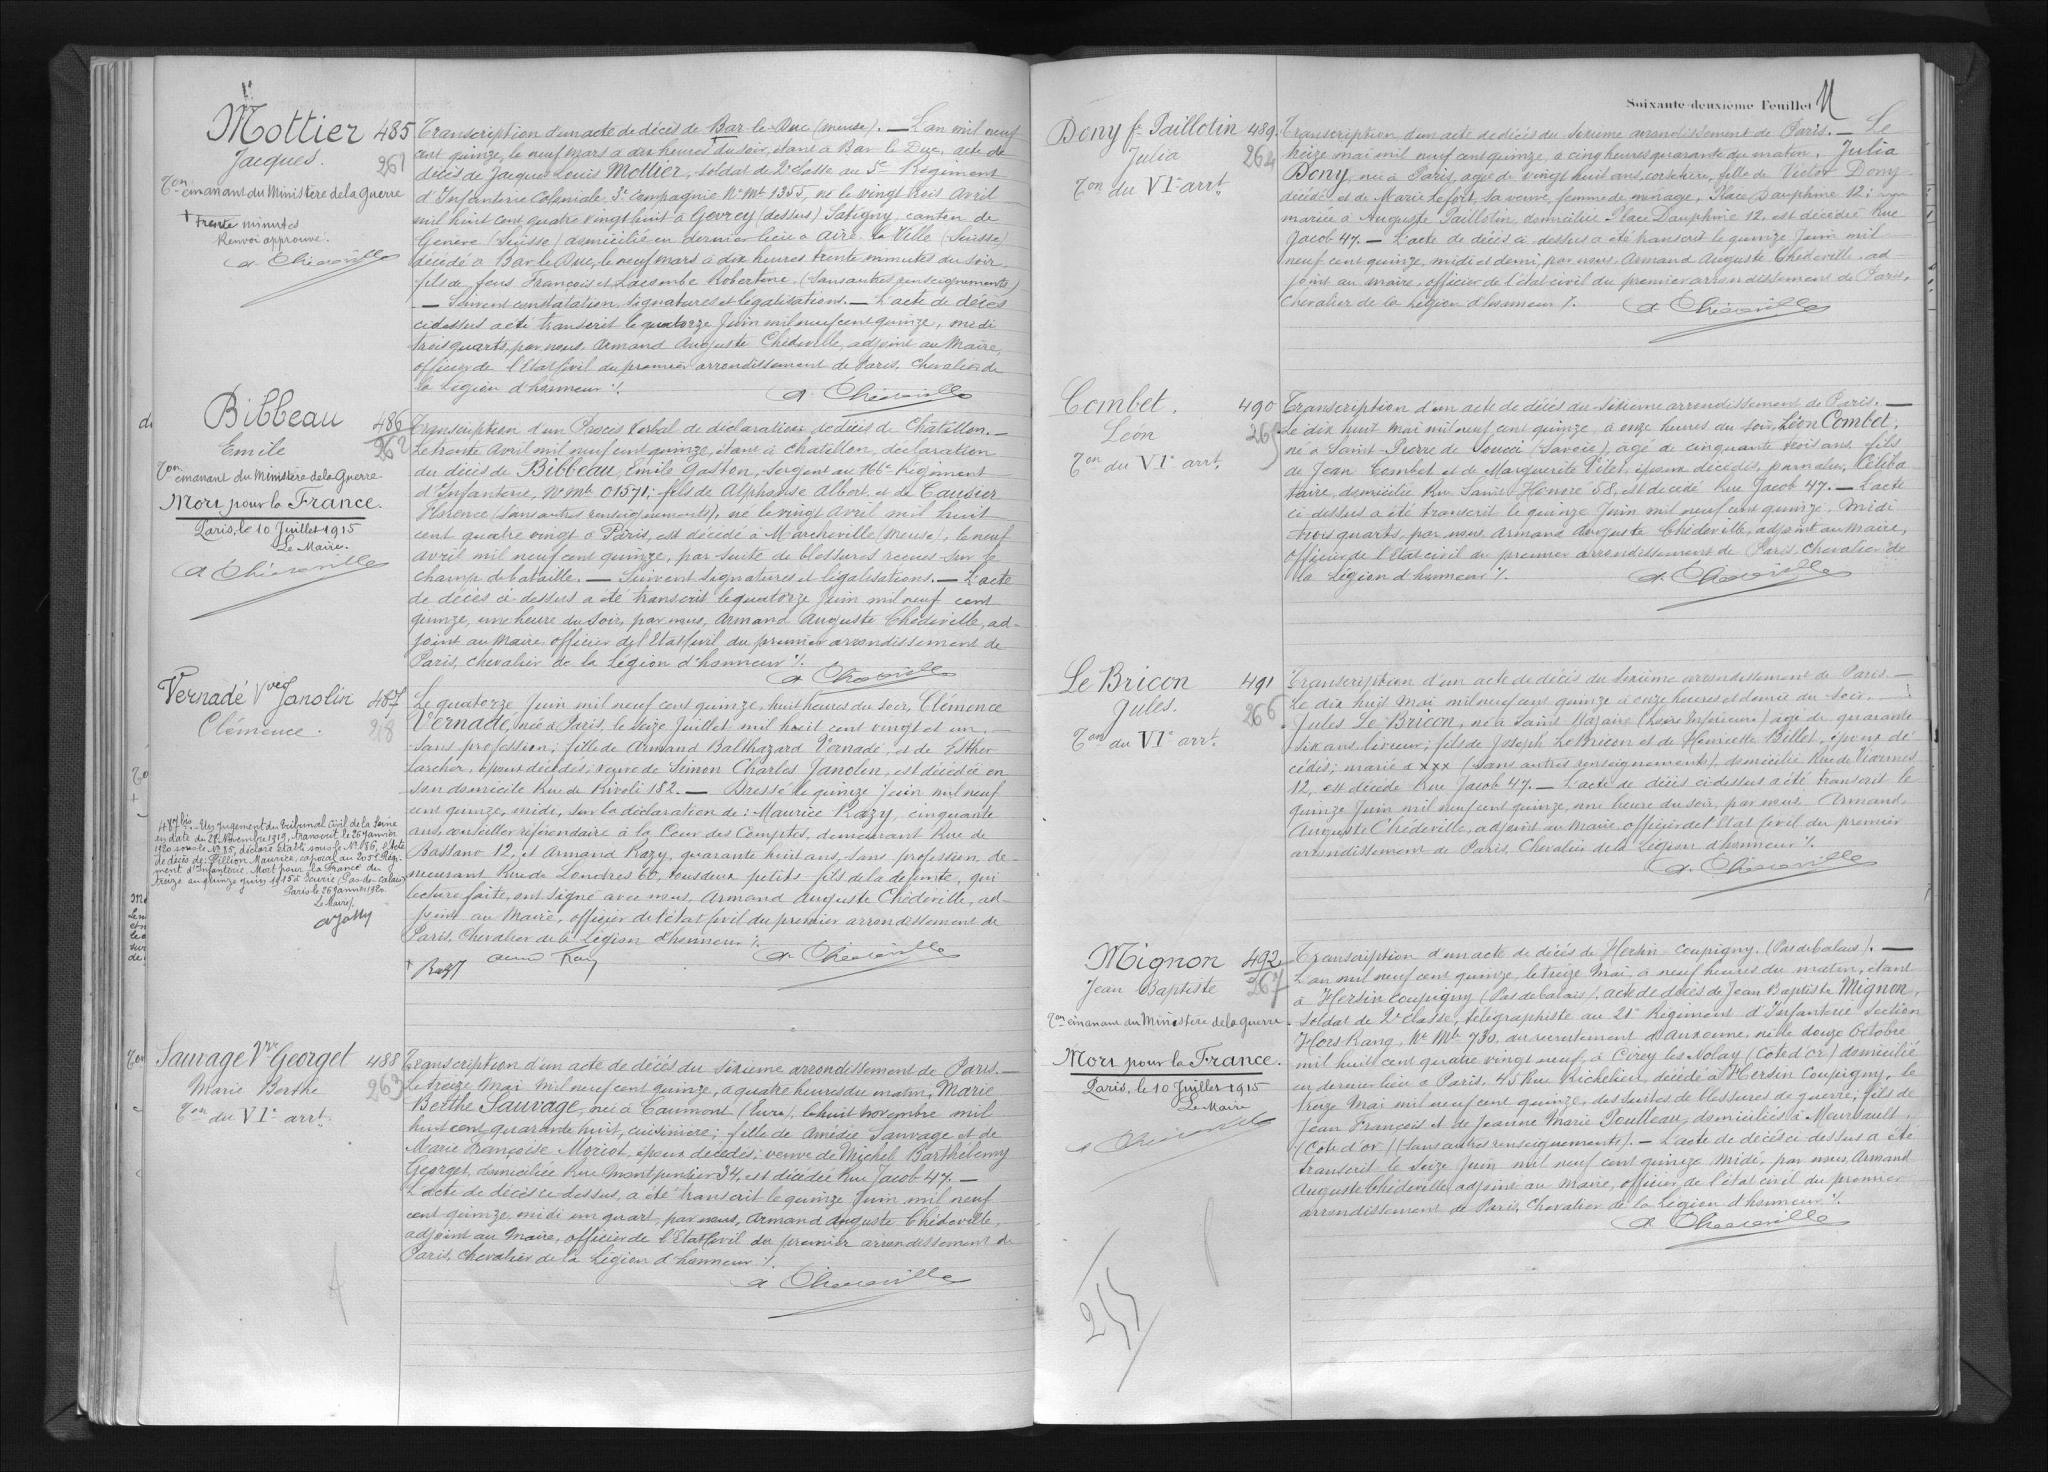 Mottier 485
Jacques.
261
Ton émanant du Ministère de la Guerre
+ Trente minutes
Renvoi approuvé.
A Chédeville
Transcription d'un acte de décès de Bar le Duc (Meuse). — L'an mil neuf
cent quinze, le neuf mars à dix heures + du soir, étant à Bar le Duc, acte de
décès de Jacques Louis Mottier, soldat de 2e classe au 5e Régiment
d'Infanterie Coloniale, 3e Compagnie No Mle 1355, né le vingt trois Avril
mil huit cent quatre vingt huit à Gevrey (dessus) Satigny, canton de
Genève (Suisse) domicilié en dernier lieu à Aire la Ville (Suisse)
décédé à Bar le Duc, le neuf mars à dix heures trente minutes du soir,
fils de feus François et Lacombe Robertine. (Sans autres renseignements)
— Suivent constatation, signatures et légalisations. — L'acte de décès
ci dessus a été transcrit le quatorze Juin mil neuf cent quinze, midi
trois quarts, par nous, Armand Auguste Chédeville, adjoint au Maire,
officier de l'Etat Civil du premier arrondissement de Paris, Chevalier de
la Légion d'honneur ./.
A. Chédeville
Bibbeau 486
Emile 262
Ton émanant du Ministère de la Guerre
Mort pour la France.
Paris, le 10 Juillet 1915
Le Maire.
A Chédeville
Transcription d'un Procès Verbal de déclaration de décès de Chatillon. —
Le trente Avril mil neuf cent quinze, étant à Chatillon, déclaration
du décès de Bibbeau, Emile Gaston, Sergent au 166e Régiment
d'Infanterie, No Mle 01571; fils de Alphonse Albert et de Causier
Florence (sans autres renseignements), né le vingt Avril mil huit
cent quatre vingt à Paris, est décédé à Marcheville (Meuse), le neuf
avril mil neuf cent quinze, par suite de blessures reçues sur le
champ de bataille. — Suivent signatures et légalisations. — L'acte
de décès ci-dessus a été transcrit le quatorze Juin mil neuf cent
quinze, une heure du soir, par nous, Armand Auguste Chédeville, ad-
joint au Maire, officier de l'Etat Civil du premier arrondissement de
Paris, Chevalier de la Légion d'honneur ./.
A Chédeville
Vernadé Vve Janolin 487
Clémence.
Le quatorze Juin mil neuf cent quinze, huit heures du soir, Clémence
Vernadé, née à Paris, le seize Juillet mil huit cent vingt et un, —
sans profession; fille de Armand Balthazard Vernadé et de Esther
Larcher, époux décédés; veuve de Simon Charles Janolin, est décédée en
son domicile Rue de Rivoli 182. — Dressé le quinze Juin mil neuf
cent quinze, midi, sur la déclaration de: Maurice Razy, cinquante
ans, conseiller référendaire à la Cour des Comptes, demeurant Rue de
Bassano 12, et Armand Razy, quarante huit ans, sans profession, de-
meurant Rue de Londres 60, tous deux petits-fils de la défunte, qui
lecture faite, ont signé avec nous, Armand Auguste Chédeville, ad-
joint au Maire, officier de l'état Civil du premier arrondissement de
Paris, Chevalier de la Légion d'honneur ./.
Razy
A. Chédeville
487 bis. — Un Jugement du Tribunal Civil de la Seine
en date du 28 Novembre 1919, transcrit le 26 Janvier
1920 sous le No 85, déclare établi sous le No 186, l'Acte
de décès de: Pillion Maurice, caporal au 205e Régi-
ment d'Infanterie, Mort pour la France du
treize au quinze juin 1915 à Ecurie (Pas-de-Calais)
Paris le 26 Janvier 1920.
Le Maire,
Sauvage Vve Georget 488
Marie Berthe 263
Ton du VIe arrt.
Transcription d'un acte de décès du sixième arrondissement de Paris. —
Le treize Mai mil neuf cent quinze, à quatre heures du matin, Marie
Berthe Sauvage, née à Caumont (Eure), le huit novembre mil
huit cent quarante huit, cuisinière; fille de Amédée Sauvage et de
Marie Françoise Moriot, époux décédés; veuve de Michel Barthélemy
Georget, domiciliée Rue Montpensier 34, est décédée Rue Jacob 47. —
L'acte de décès ci-dessus, a été transcrit le quinze Juin mil neuf
cent quinze, midi un quart, par nous, Armand Auguste Chédeville,
adjoint au Maire, officier de l'Etat Civil du premier arrondissement de
Paris, Chevalier de la Légion d'honneur ./.
A Chédeville
Soixante-deuxième Feuillet
Dony fe Paillotin 489
Julia 264
Ton du VIe arrt.
Transcription d'un acte de décès du sixième arrondissement de Paris. — Le
treize mai mil neuf cent quinze, à cinq heures quarante du matin, Julia
Dony, née à Paris, âgée de vingt huit ans, corsetière, fille de Victor Dony
décédé, et de Marie Lefort, sa veuve, femme de ménage, Place Dauphine 12;
mariée à Auguste Paillotin, domiciliée Place Dauphine 12, est décédée Rue
Jacob 47. — L'acte de décès ci-dessus a été transcrit le quinze Juin mil
neuf cent quinze, midi et demi, par nous, Armand Auguste Chédeville, ad
joint au maire, officier de l'état civil du premier arrondissement de Paris,
Chevalier de la Légion d'honneur ./.
A Chédeville
Combet. 490
Léon 265
Ton du VIe arrt.
Transcription d'un acte de décès du sixième arrondissement de Paris. —
Le dix huit Mai mil neuf cent quinze, à onze heures du soir, Léon Combet,
né à Saint Pierre de Soucci (Savoie), âgé de cinquante trois ans, fils
de Jean Combet et de Marguerite Vilet, époux décédés, célíba
taire, domicilié Rue Saint Honoré 58, est décédé Rue Jacob 47. — L'acte
ci-dessus a été transcrit le quinze Juin mil neuf cent quinze, Midi
trois quarts, par nous, Armand Auguste Chédeville, adjoint au Maire,
officier de l'Etat Civil du premier arrondissement de Paris, Chevalier de
la Légion d'honneur ./.
A. Chédeville
Le Bricon 491
Jules. 266
Ton du VIe arrt.
Transcription d'un acte de décès du sixième arrondissement de Paris. —
Le dix huit Mai mil neuf cent quinze à onze heures et demie du soir, —
Jules Le Bricon, né à Saint Nazaire (Loire Inférieure) âgé de quarante
six ans, livreur; fils de Joseph Le Bricon et de Henriette Billet, époux dé
cédés; marié à xxx (sans autres renseignements), domicilié Rue de Viarmes
12, est décédé Rue Jacob 47. — L'acte de décès ci-dessus a été transcrit le
quinze Juin mil neuf cent quinze, une heure du soir, par nous Armand
Auguste Chédeville, adjoint au Maire, officier de l'Etat Civil du premier
arrondissement de Paris, Chevalier de la Légion d'honneur ./.
A. Chédeville
Mignon 492
Jean Baptiste 267
Ton émanant du Ministère de la Guerre
Mort pour la France.
Paris, le 10 Juillet 1915
Le Maire
A Chédeville
Transcription d'un acte de décès de Hersin-Coupigny. (Pas de Calais). —
L'an mil neuf cent quinze, le treize Mai, à neuf heures du matin, étant
à Hersin Coupigny (Pas de Calais), acte de décès de Jean Baptiste Mignon,
soldat de 2e classe, télégraphiste au 21e Régiment d'Infanterie Section
Hors Rang, No Mle 730, au recrutement d'Auxonne, né le douze Octobre
mil huit cent quatre vingt neuf, à Cirey les Nolay (Côte d'Or) domicilié
en dernier lieu à Paris, 45 Rue Richelieu, décédé à Hersin Coupigny, le
treize Mai mil neuf cent quinze, des suites de blessures de guerre; fils de
Jean François et de Jeanne Marie Poulleau, domiciliés à Meursault,
(Côte d'Or) (sans autres renseignements). — L'acte de décès ci dessus a été
transcrit le seize Juin mil neuf cent quinze, midi, par nous, Armand
Auguste Chédeville, adjoint au Maire, officier de l'état civil du premier
arrondissement de Paris, Chevalier de la Légion d'honneur ./.
A. Chédeville